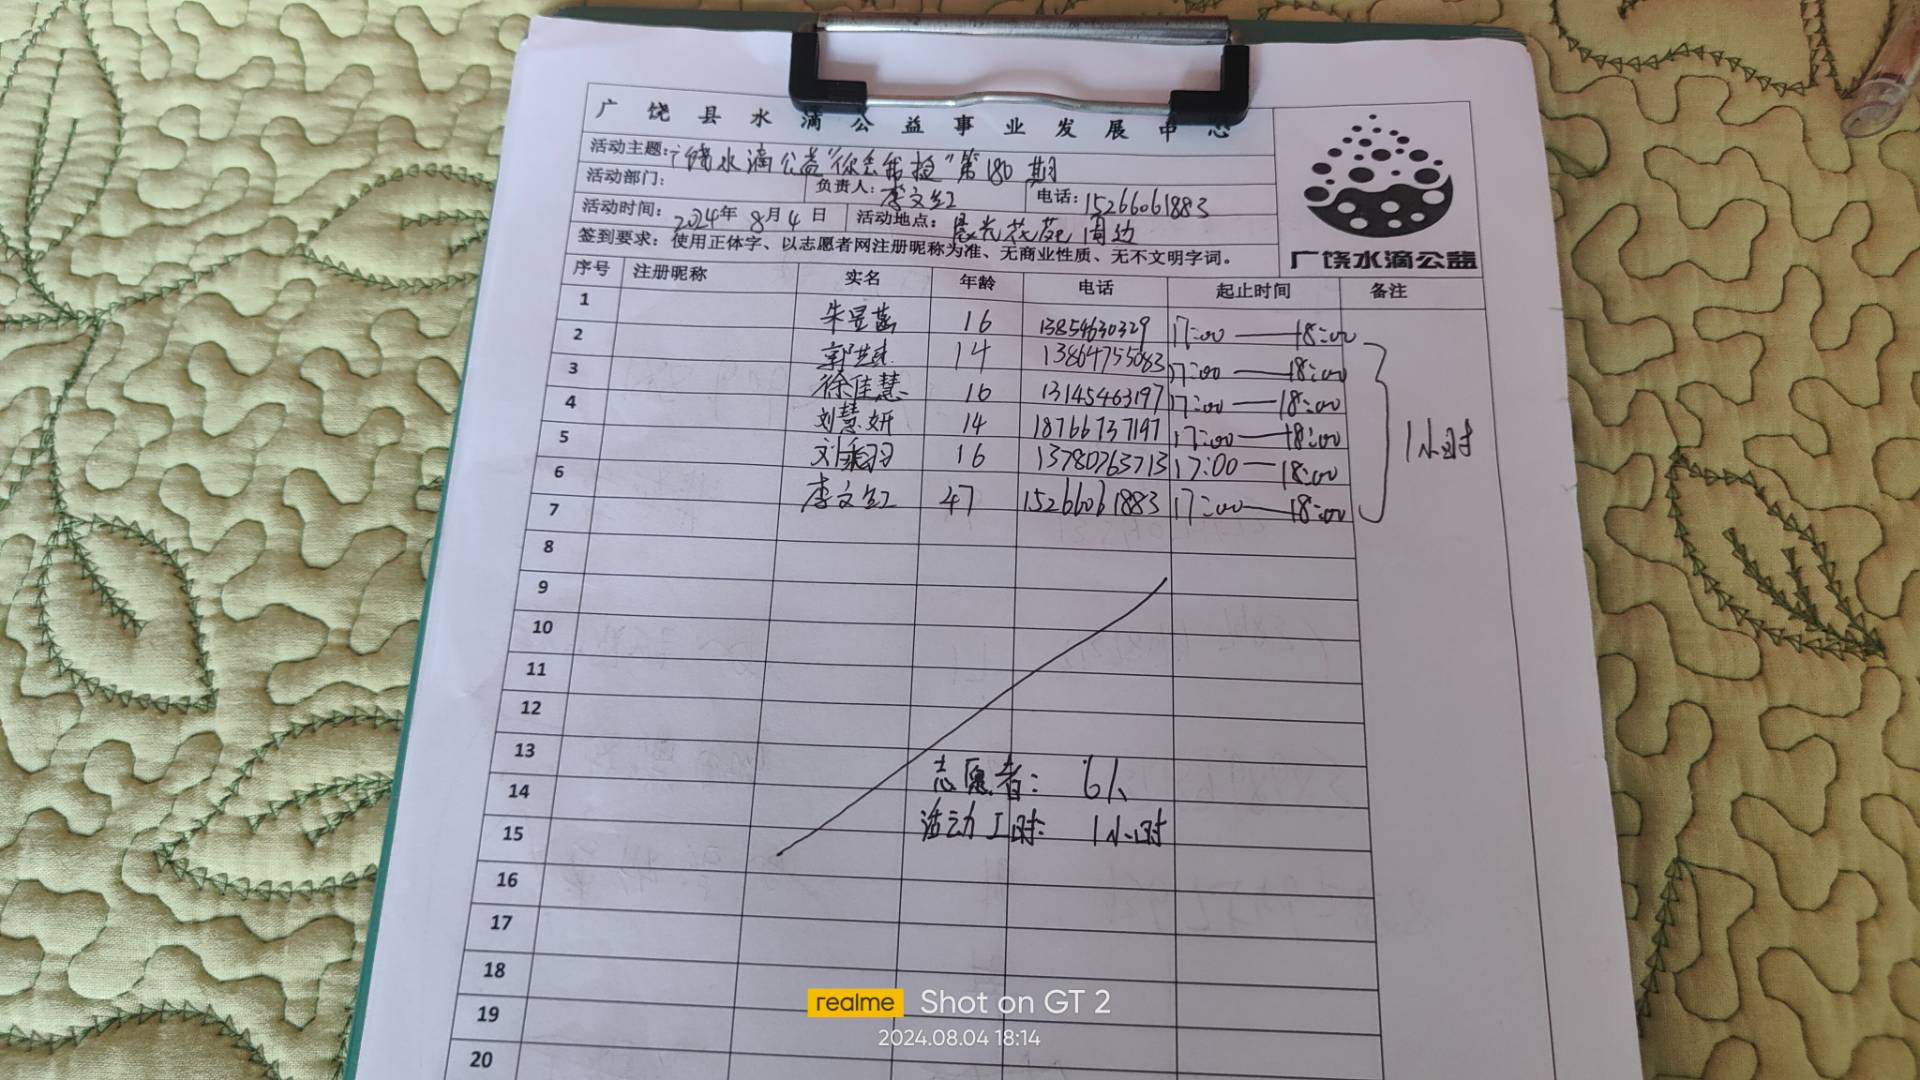 广饶县水滴公益事业发展中心
活动主题:广饶水滴公益"你丢我捡"第180期
活动部门: 负责人:李文红 电话:15266061883
活动时间:2024年8月4日 活动地点:晨光花苑周边
签到要求:使用正体字、以志愿者网注册昵称为准、无商业性质、无不文明字词。
广饶水滴公益
序号 注册昵称 实名 年龄 电话 起止时间 备注
1 朱昱菡 16 13854630329 17:00——18:00
2 14 13864755083 17:00——18:00
3 徐佳慧 16 13145463197 17:00——18:00
4 刘慧妍 14 18766737197 17:00——18:00
5 刘乘羽 16 13780763713 17:00—18:00
6 李文红 47 15266061883 17:00——18:00
1小时
7
8
9
10
11
12
13
志愿者: 6人
14
活动工时: 1小时
15
16
17
18
19
20
realme Shot on GT 2
2024.08.04 18:14